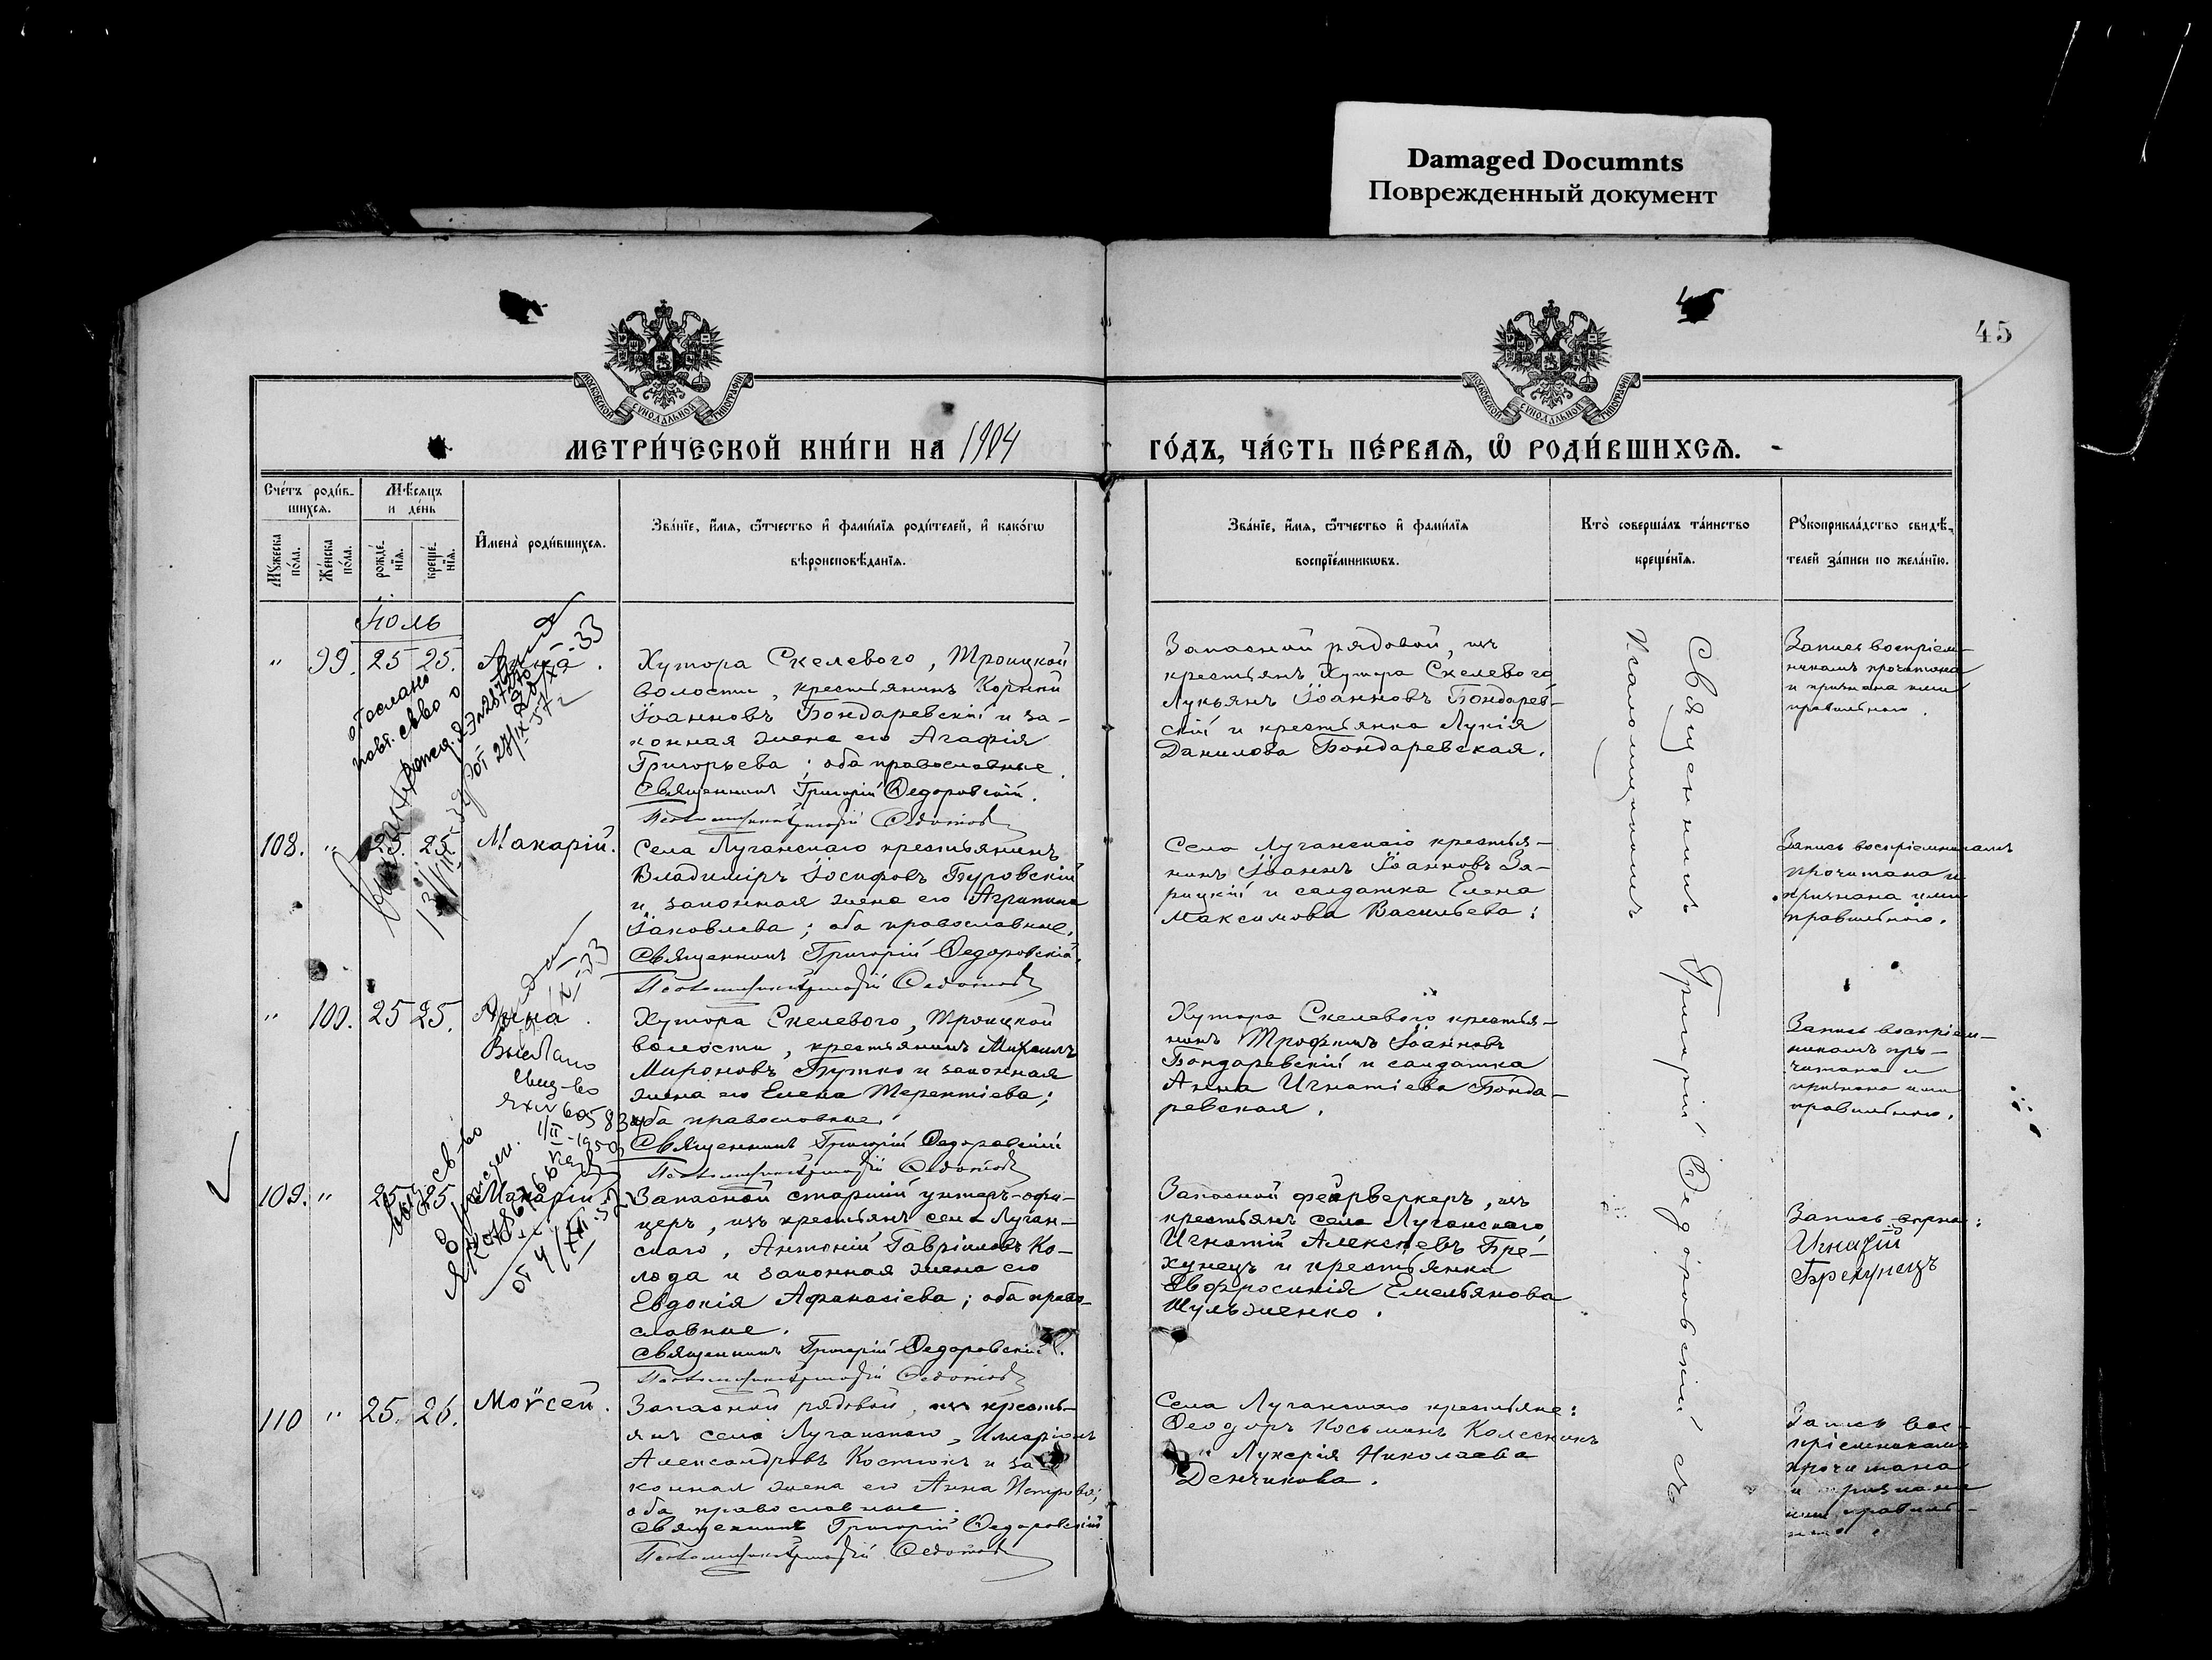 Damaged Documnts
Поврежденный документ
45
МОСКОВСКОЙ СѴНОДАЛЬНОЙ ТИПОГРАФІИ
МОСКОВСКОЙ СѴНОДАЛЬНОЙ ТИПОГРАФІИ
МЕТРИ́ЧЕСКОЙ КНИ́ГИ НА 1904
ГО́ДЪ, ЧА́СТЬ ПЕ́РВАѦ, Ѡ҆ РОДИ́ВШИХСѦ.
Сче́тъ роди́в-
шихсѧ.
Мꙋ́жеска по́ла.
Же́нска по́ла.
Мѣ́сѧцъ
и де́нь
рожде́-
нїѧ.
креще́-
нїѧ.
И҆мена̀ роди́вшихсѧ.
Зва́нїе, и҆́мѧ, ѻ҆́тчество и҆ фами́лїѧ роди́телей, и҆ како́гѡ
вѣроисповѣ́данїѧ.
Зва́нїе, и҆́мѧ, ѻ҆́тчество и҆ фами́лїѧ
воспрїе́мникѡвъ.
Кто̀ соверша́лъ та́инство
креще́нїѧ.
Рꙋкоприкла́дство свидѣ́-
телей за́писи по жела́нїю.
Іюль
" 99. 25 25.
Хутора Скелевого, Троицкой
волости, крестьянинъ Корній
Іоанновъ Бондаревскій и за-
конная жена его Агафія
Григорьева; оба православные.
Священникъ Григорій Федоровскій.
Запасной рядовой, изъ
крестьянъ Хутора Скелевого
Лукьянъ Іоанновъ Бондарев-
скій и крестьянка Лукія
Данилова Бондаревская.
Запись воспріем-
никамъ прочитана
и признана ими
правильною.
108. " 25. 25. Макарій.
Села Луганскаго крестьянинъ
Владиміръ Іосифовъ Буровскій
и законная жена его Агрипина
Іаковлева; оба православные.
Священникъ Григорій Федоровскій.
Села Луганскаго крестья-
нинъ Іоаннъ Іоанновъ За-
рицкій и солдатка Елена
Максимова Васильева;
Запись воспріемникамъ
прочитана и
признана ими
правильною.
" 100. 25 25. Анна.
Хутора Скелевого, Троицкой
волости, крестьянинъ Михаилъ
Мироновъ Бутко и законная
жена его Елена Терентіева;
оба православные.
Священникъ Григорій Федоровскій
Хутора Скелевого крестья-
нинъ Трофимъ Іоанновъ
Бондаревскій и солдатка
Анна Игнатіева Бонда-
ревская.
Запись воспріем-
никамъ про-
читана и
признана ими
правильною.
109. " 25 25 Макарій
Запасной старшій унтеръ-офи-
церъ, изъ крестьянъ села Луган-
скаго, Антоній Гавріиловъ Ко-
лода и законная жена его
Евдокія Афанасіева; оба право-
славные.
Священникъ Григорій Федоровскій.
Запасной фейрверкеръ, изъ
крестьянъ села Луганскаго
Игнатій Алексѣевъ Бре-
хунецъ и крестьянка
Евфросинія Емельянова
Шульженко.
Запись вѣрна:
Игнатій
Брехунецъ
110 " 25. 26. Моѵсей.
Запасной рядовой, изъ кресть-
янъ села Луганскаго, Илларіонъ
Александровъ Костюкъ и за-
конная жена его Анна Петрова;
оба православные.
Священникъ Григорій Федоровскій
Села Луганскаго крестьяне:
Феодоръ Косьминъ Колесникъ
и Лукерія Николаева
Денчикова.
Запись вос-
пріемникамъ
прочитана
и признана
ими правиль-
ною.
Священникъ Григорій Федоровскій съ
Псаломщикомъ